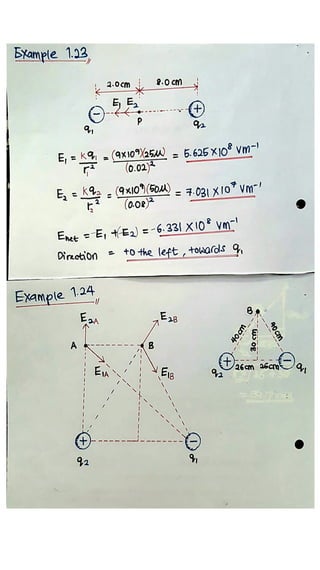 Example 1.23
2.0cm 8.0cm
E₁ E₂
− P +
q₁ q₂
E₁ = kq₁/r₁² = (9×10⁹)(25μ)/(0.02)² = 5.625 × 10⁸ Vm⁻¹
E₂ = kq₂/r₂² = (9×10⁹)(50μ)/(0.08)² = 7.031 × 10⁷ Vm⁻¹
Enet = -E₁ + (-E₂) = -6.331 × 10⁸ Vm⁻¹
Direction = to the left, towards q₁
Example 1.24
E₂A E₂B
A B
E₁A E₁B
+ −
q₂ q₁
B
40cm 30cm 40cm
+ 26cm 26cm −
q₂ q₁